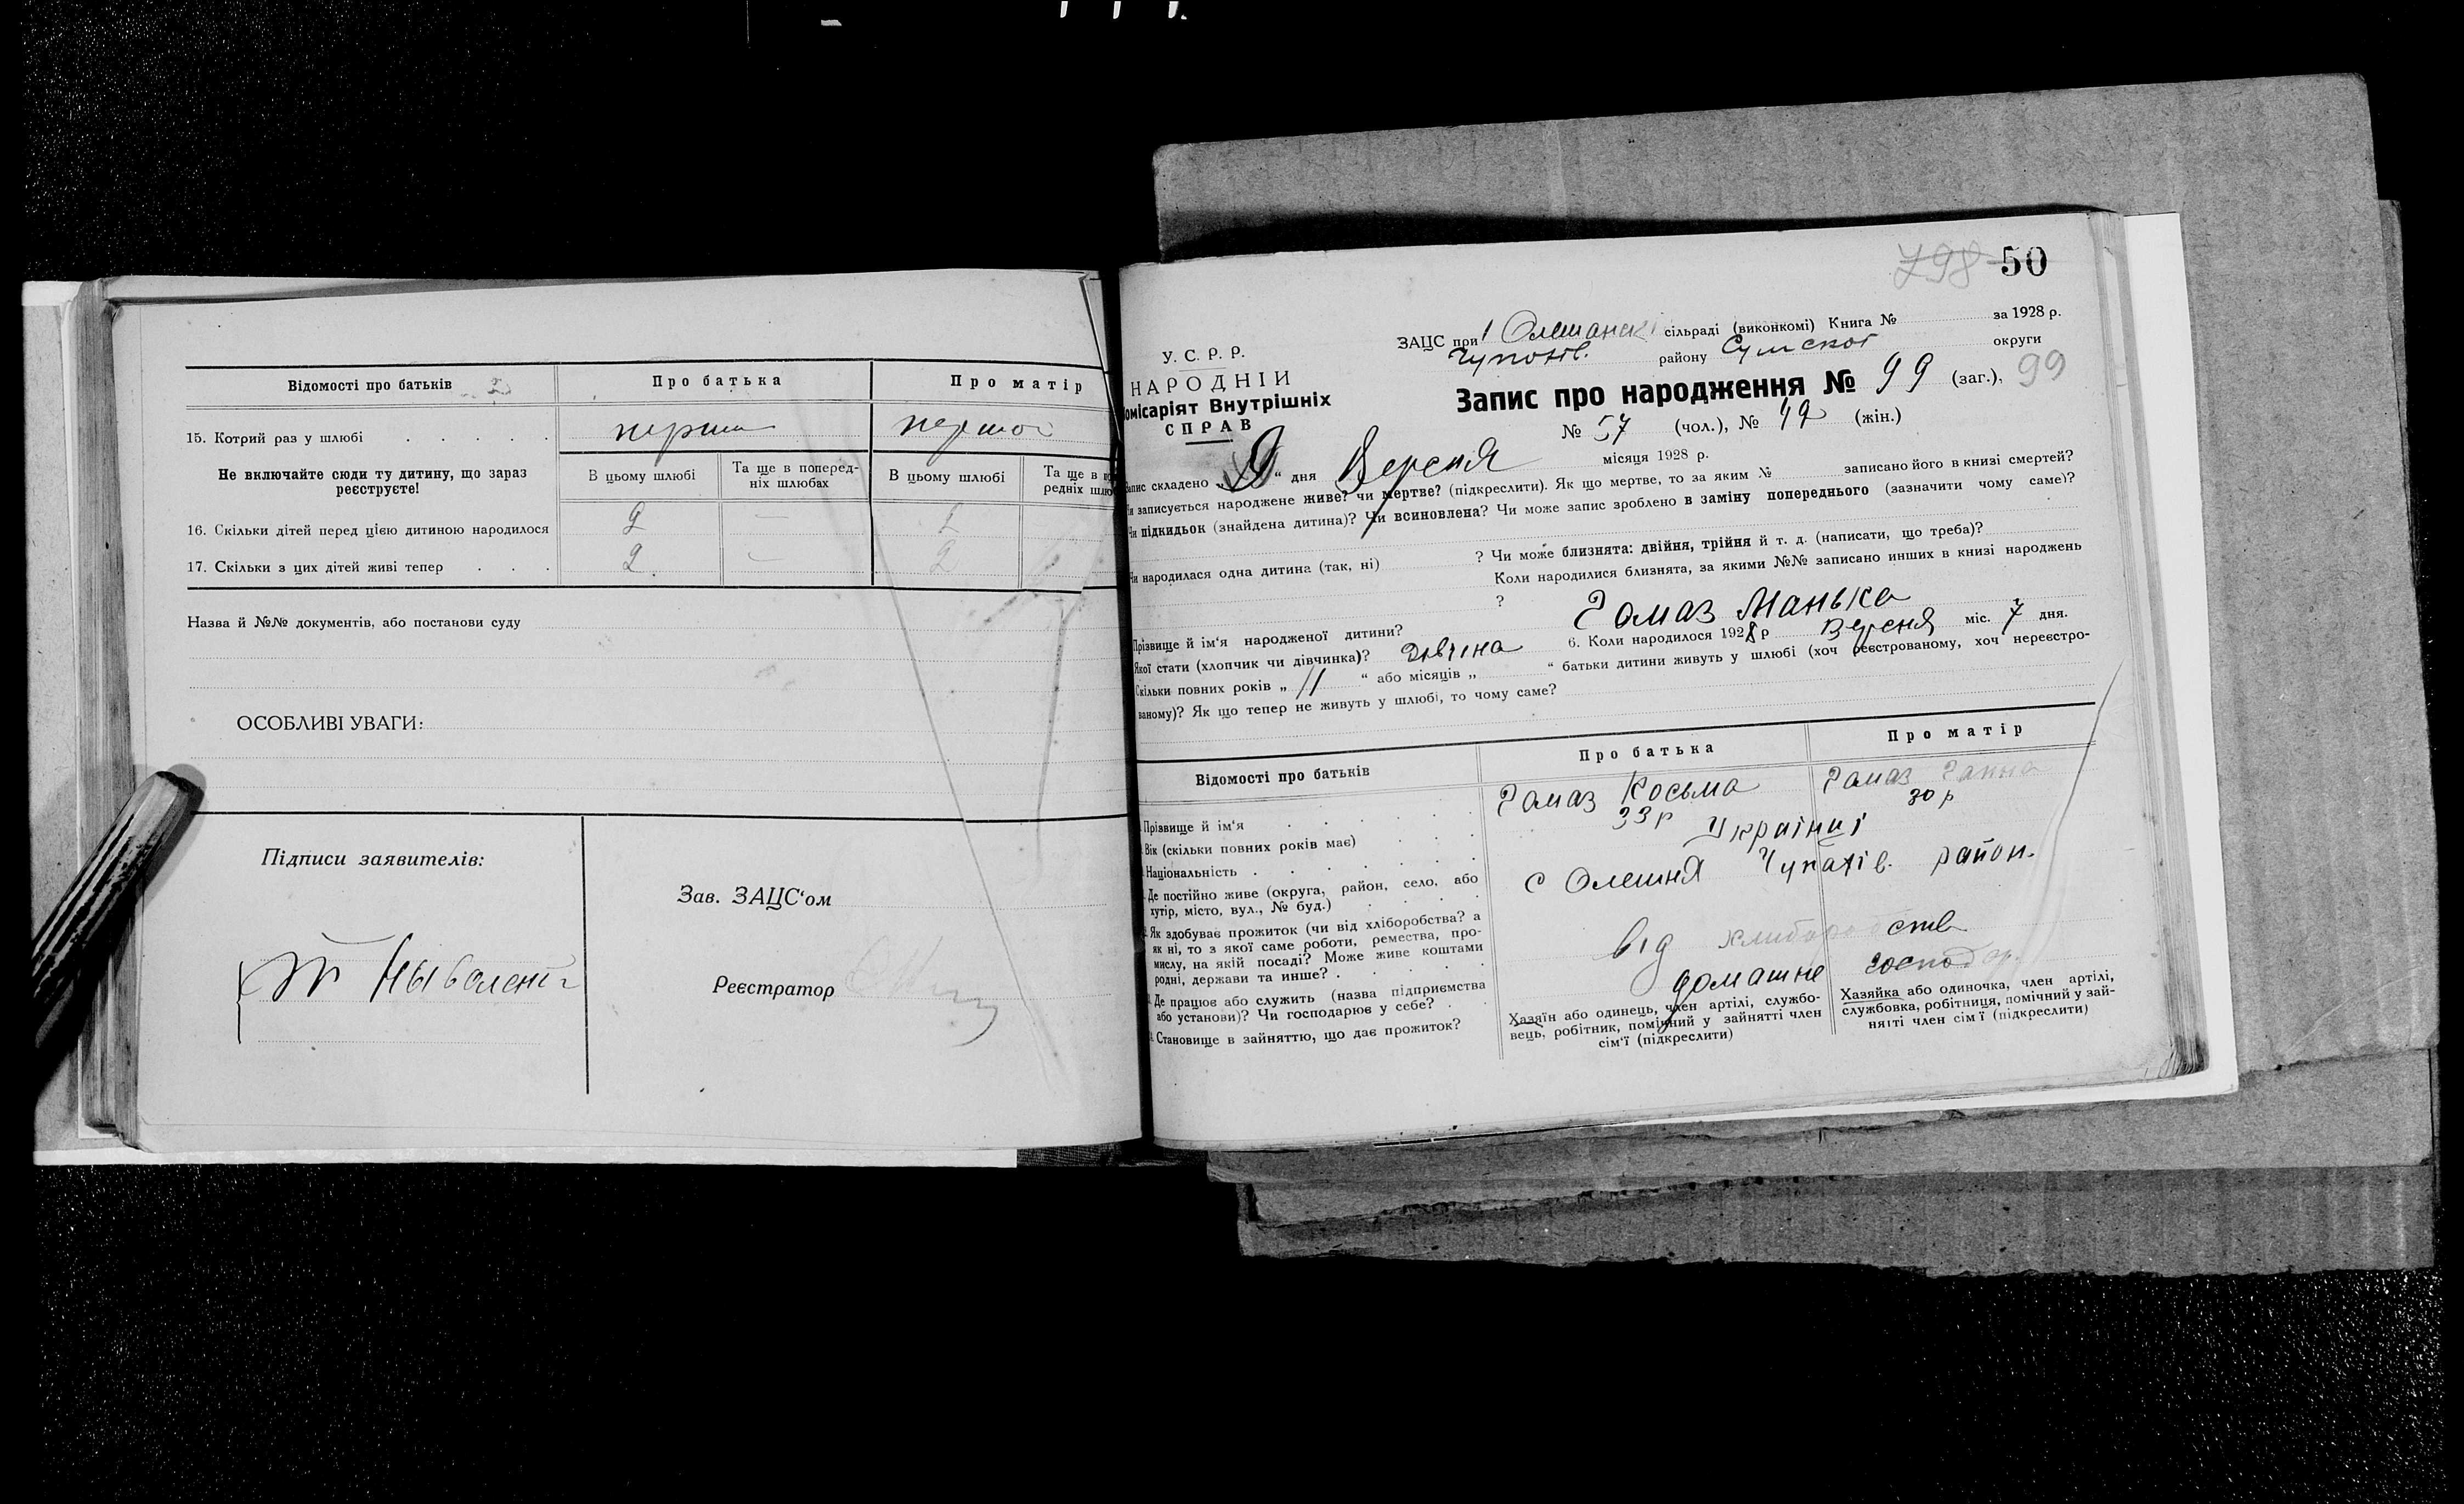 Відомості про батьків
Про батька
Про матір
15. Котрий раз у шлюбі
перший
першої
Не включайте сюди ту дитину, що зараз реєструєте!
В цьому шлюбі
Та ще в поперед-
ніх шлюбах
В цьому шлюбі
Та ще в
редніх
16. Скільки дітей перед цією дитиною народилося
2
2
17. Скільки з цих дітей живі тепер
2
2
Назва й №№ документів, або постанови суду
ОСОБЛИВІ УВАГИ:
Підписи заявителів:
Зав. ЗАЦС'ом
Реєстратор
798 50
У. С. Р. Р.
НАРОДНІЙ
омісаріят Внутрішніх
СПРАВ
ЗАЦС при 1 Олешанск сільраді (виконкомі) Книга № за 1928 р.
Чупахів. району Сумской округи
Запис про народження № 99 (заг.), 99
№ 57 (чол.), № 42 (жін.)
апис складено „9“ дня Вересня місяця 1928 р.
и записується народжене живе? чи мертве? (підкреслити). Як що мертве, то за яким № записано його в книзі смертей?
Чи підкидьок (знайдена дитина)? Чи всиновлена? Чи може запис зроблено в заміну попереднього (зазначити чому саме)?
Чи народилася одна дитина (так, ні) ? Чи може близнята: двійня, трійня й т. д. (написати, що треба)?
Коли народилися близнята, за якими №№ записано инших в книзі народжень
?
Прізвище й ім'я народженої дитини? Гамаз Манька
Якої стати (хлопчик чи дівчинка)? Дівчина 6. Коли народилося 1928 р Вересня міс. 7 дня.
Скільки повних років „ 11 “ або місяців „ “ батьки дитини живуть у шлюбі (хоч реєстрованому, хоч нереєстро-
ваному)? Як що тепер не живуть у шлюбі, то чому саме?
Відомості про батьків
Про батька
Про матір
Прізвище й ім'я
Гамаз Косьма
Гамаз Ганна
Вік (скільки повних років має)
33 р
30 р
Національність
Українці
Де постійно живе (округа, район, село, або
хутір, місто, вул., № буд.)
с Олешня Чупахів. район.
Як здобуває прожиток (чи від хліборобства? а
як ні, то з якої саме роботи, ремества, про-
мислу, на якій посаді? Може живе коштами
родні, держави та инше?
від хлиборобств
Де працює або служить (назва підприємства
або установи)? Чи господарює у себе?
домашне господар.
Становище в зайняттю, що дає прожиток?
Хазяїн або одинець, член артілі, службо-
вець, робітник, помічний у зайнятті член
сім'ї (підкреслити)
Хазяйка або одиночка, член артілі,
службовка, робітниця, помічний у зай-
няіті член сім'ї (підкреслити)